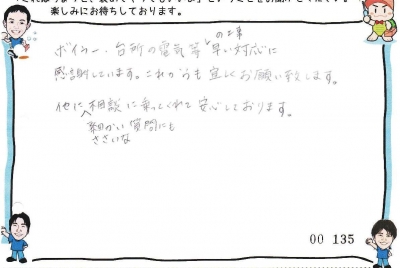 楽しみにお待ちしております。
の工事
ボイラー、台所の電気等 早い対応に
感謝しています。これからも宜しくお願い致します。
他に相談に乗ってくれて安心しております。
細かい質問にも
ささいな
00 135